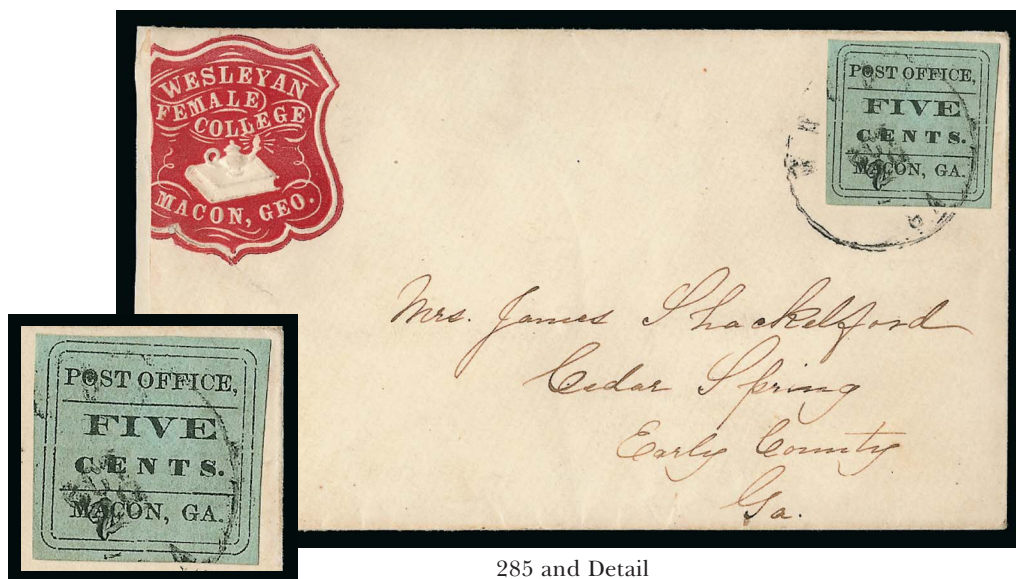 WESLEYAN
FEMALE
COLLEGE
MACON, GEO.
POST OFFICE,
FIVE
CENTS.
MACON, GA.
Mrs. James Shackelford
Cedar Spring
Early County
Ga.
POST OFFICE,
FIVE
CENTS.
MACON, GA.
285 and Detail